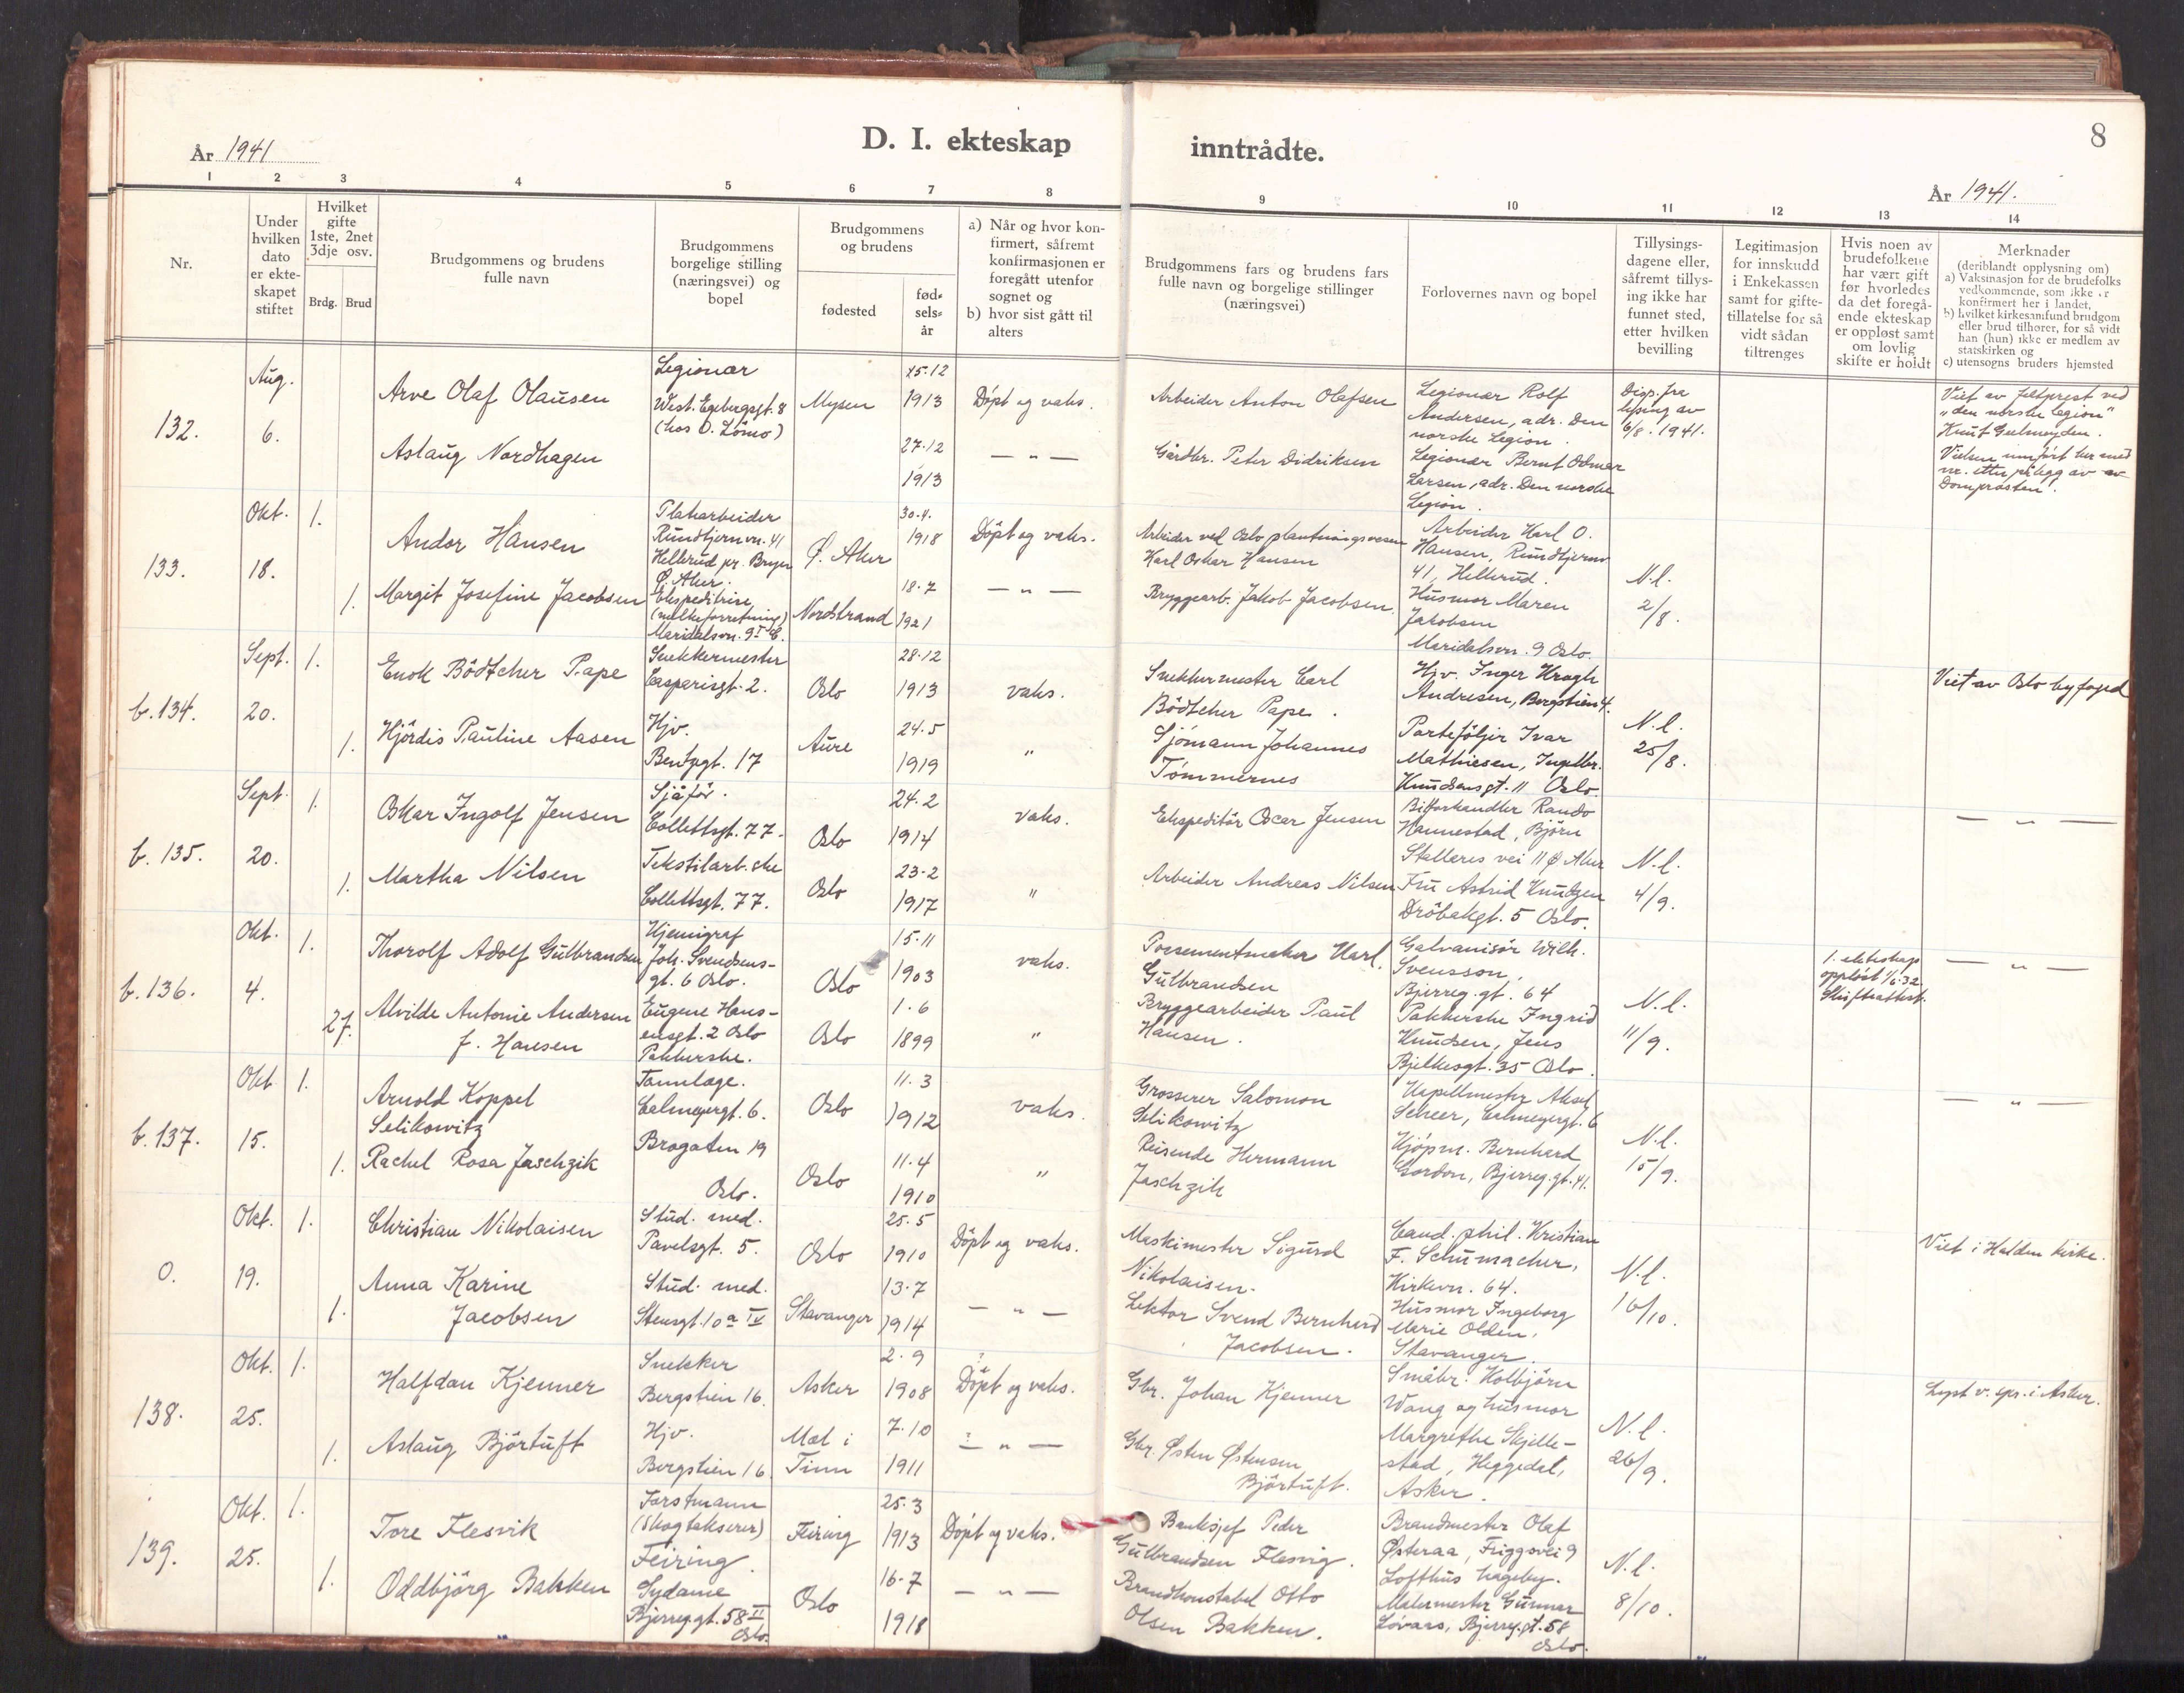 8
År 1941
D. I. ekteskap inntrådte.
År 1941.
1 2 3 4 5 6 7 8 9 10 11 12 13 14
Nr.
Under
hvilken
dato
er ekte-
skapet
stiftet
Hvilket
gifte
1ste, 2net
3dje osv.
Brdg. Brud
Brudgommens og brudens
fulle navn
Brudgommens
borgelige stilling
(næringsvei) og
bopel
Brudgommens
og brudens
fødested
fød-
sels-
år
a) Når og hvor kon-
firmert, såfremt
konfirmasjonen er
foregått utenfor
sognet og
b) hvor sist gått til
alters
Brudgommens fars og brudens fars
fulle navn og borgelige stillinger
(næringsvei)
Forlovernes navn og bopel
Tillysings-
dagene eller,
såfremt tillys-
ing ikke har
funnet sted,
etter hvilken
bevilling
Legitimasjon
for innskudd
i Enkekassen
samt for gifte-
tillatelse for så
vidt sådan
tiltrenges
Hvis noen av
brudefolkene
har vært gift
før hvorledes
da det foregå-
ende ekteskap
er oppløst samt
om lovlig
skifte er holdt
Merknader
(deriblandt opplysning om)
a) Vaksinasjon for de brudefolks
vedkommende, som ikke er
konfirmert her i landet,
b) hvilket kirkesamfund brudgom
eller brud tilhører, for så vidt
han (hun) ikke er medlem av
statskirken og
c) utensogns bruders hjemsted
132.
Aug.
6.
Arve Olaf Olausen
Legionær
West. Egebergsgt. 8
(hos O. Lömo)
Mysen
15.12
1913
Döpt og vaks.
Arbeider Anton Olafsen
Legionær Rolf
Andersen, adr. Den
norske Legion.
Disp. fra
lysing av
6/8. 1941.
Viet av feltprest ved
"den norske legion"
Knut Gelmeyden.
Vielsen innført her med
nr. etter pålegg av av
Domprosten.
Aslaug Nordhagen
27.12
1913
— " —
Gårdbr. Peter Didriksen
Legionær Bernt Odmar
Larsen, adr. Den norske
Legion.
133.
Okt.
18.
1.
Andor Hansen
Platearbeider
Rundtjernvn. 41
Hellerud pr. Bryn
Ø. Aker.
Ø. Aker
30.4.
1918
Döpt og vaks.
Arbeider ved Oslo plantningsvesen
Karl Oskar Hansen
Arbeider Karl O.
Hansen, Rundtjernv
41, Hellerud.
N.l.
2/8.
1.
Margit Josefine Jacobsen
Ekspeditrise
(melkeforretning)
Maridalsvn. 9
Nordstrand
18.7
1921
— " —
Bryggearb. Jakob Jacobsen.
Husmor Maren
Jakobsen
Maridalsvn. 9 Oslo.
b. 134.
Sept.
20.
1.
Enok Bödtcher Pape
Snekkermester
Casparisgt. 2.
Oslo
28.12
1913
vaks.
Snekkermester Carl
Bödtcher Pape.
Hjv. Inger Krogh
Andresen, Bergstien 4.
N.l.
25/8.
Viet av Oslo byfoged
1.
Hjördis Pauline Aasen
Hjv.
Bentsegt. 17
Aure
24.5
1919
"
Sjömann Johannes
Tömmernes
Porteföljir Ivar
Mathiesen, Ingelbr.
Knudsensgt. 11 Oslo.
b. 135.
Sept.
20.
1.
Oskar Ingolf Jensen
Sjåför.
Collettsgt. 77.
Oslo
24.2
1914
vaks.
Ekspeditör Oscar Jensen
Hannestad, Björn
Stalleres vei 11 Ø Aker
N.l.
4/9.
— " —
1.
Martha Nilsen
Tekstilarb.ske
Collettsgt. 77.
Oslo
23.2
1917
"
Arbeider Andreas Nilsen
Fru Astrid Knudzen
Dröbakgt. 5 Oslo.
b. 136.
Okt.
4.
1.
Thorolf Adolf Gulbrandsen
Kjemigraf
Joh. Svendsens-
gt. 6 Oslo.
Oslo
15.11
1903
vaks.
Possementmaker Karl
Gulbrandsen
Galvanisör Wilh.
Svensson,
Bjerreg.gt. 64
N.l.
11/9.
1. ekteskap
opplöst 1/6.32
Skifteattest.
— " —
27.
Alvilde Antonie Andersen
f. Hansen
Eugene Hans-
ensgt. 2 Oslo
Pakkerske.
Oslo
1.6
1899
"
Bryggearbeider Paul
Hansen.
Pakkerske Ingrid
Knudsen, Jens
Bjelkesgt. 35 Oslo.
b. 137.
Okt
15.
1.
Arnold Koppel
Selikowitz
Tannlæge.
Calmeyergt. 6.
Oslo
11.3
1912
vaks.
Grosserer Salomon
Selikowitz
Kapellmester Aksel
Scheer, Calmeyergt. 6
N.l.
15/9.
— " —
1.
Rachel Rosa Jaschzik
Brogaten 19
Oslo.
Oslo
11.4
1910
"
Reisende Hermann
Jaschzik
Kjöpm. Bernhard
Gordon, Bjerreg.gt. 41.
0.
Okt.
19.
1.
Christian Nikolaisen
Stud. med.
Pavelsgt. 5.
Oslo
25.5
1910
Döpt og vaks.
Maskimester Sigurd
Nikolaisen.
Cand. phil. Kristian
F. Schumacher,
Kirkevn. 64.
N.l.
16/10.
Viet i Halden kirke.
1.
Anna Karine
Jacobsen
Stud. med.
Stensgt. 10 a IV
Stavanger
13.7
1914
— " —
Lektor Svend Bernhard
Jacobsen.
Husmor Ingeborg
Marie Olden,
Stavanger
138.
Okt.
25.
1.
Halfdan Kjenner
Snekker
Bergstien 16.
Asker
2.9
1908
?
Döpt og vaks.
Gbr. Johan Kjenner
Småbr. Kolbjörn
Wang og husmor
N.l.
26/9.
Lyst v. spr. i Asker.
1.
Aslaug Björtuft
Hjv.
Bergstien 16
Mæl i
Tinn
7.10
1911
— " —
Gbr. Østen Østensen
Björtuft.
Margrethe Skjelle-
stad, Heggedal,
Asker.
139.
Okt.
25.
1.
Tore Flesvik
Forstmann
(Skogtakserer)
Feiring
Feiring
25.3
1913
Döpt og vaks.
Banksjef Peder
Gulbrandsen Flesvig.
Brandmester Olaf
Østeraa, Friggsvei 9
Lofthus hageby.
N.l.
8/10.
1.
Oddbjörg Bakken
Sydame
Bjerreg.gt. 58 II
Oslo.
Oslo
16.7
1918
— " —
Brandkonstabel Otto
Olsen Bakken.
Malermester Gunnar
Lövaas, Bjerreg.gt. 58
Oslo.